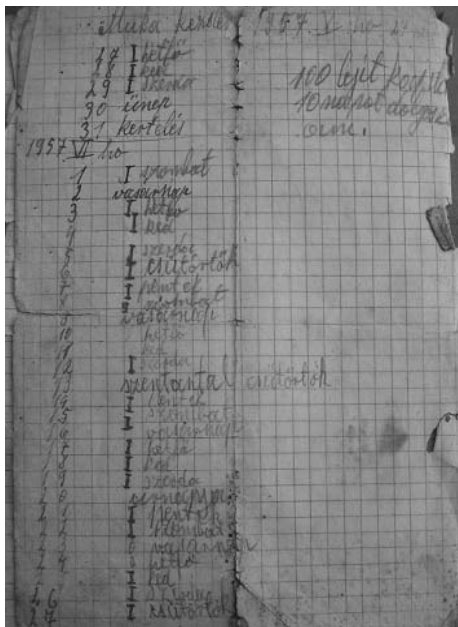 Munka kezdés 1957 V hó
27 I hétfő
28 I ked
29 I szerda
30 ünep
31 kertelés
100 lejt
10 napot
1957 VI ho
1 I szombat
2 vasárnap
3 I hétfő
4 I ked
5 I szerda
6 I csütörtök
7 I péntek
8 szombat
9 vasárnap
10 hetfő
11 ked
12 I szerda
13 szentantal csütörtök
14 I péntek
15 I szombat
16 I vasárnap
17 I hetfő
18 I ked
19 I szerda
20 urnapja
21 I péntek
22 I szombat
23 vasárnap
24 hetfő
I ked
26 I szerda
27 I csütörtök